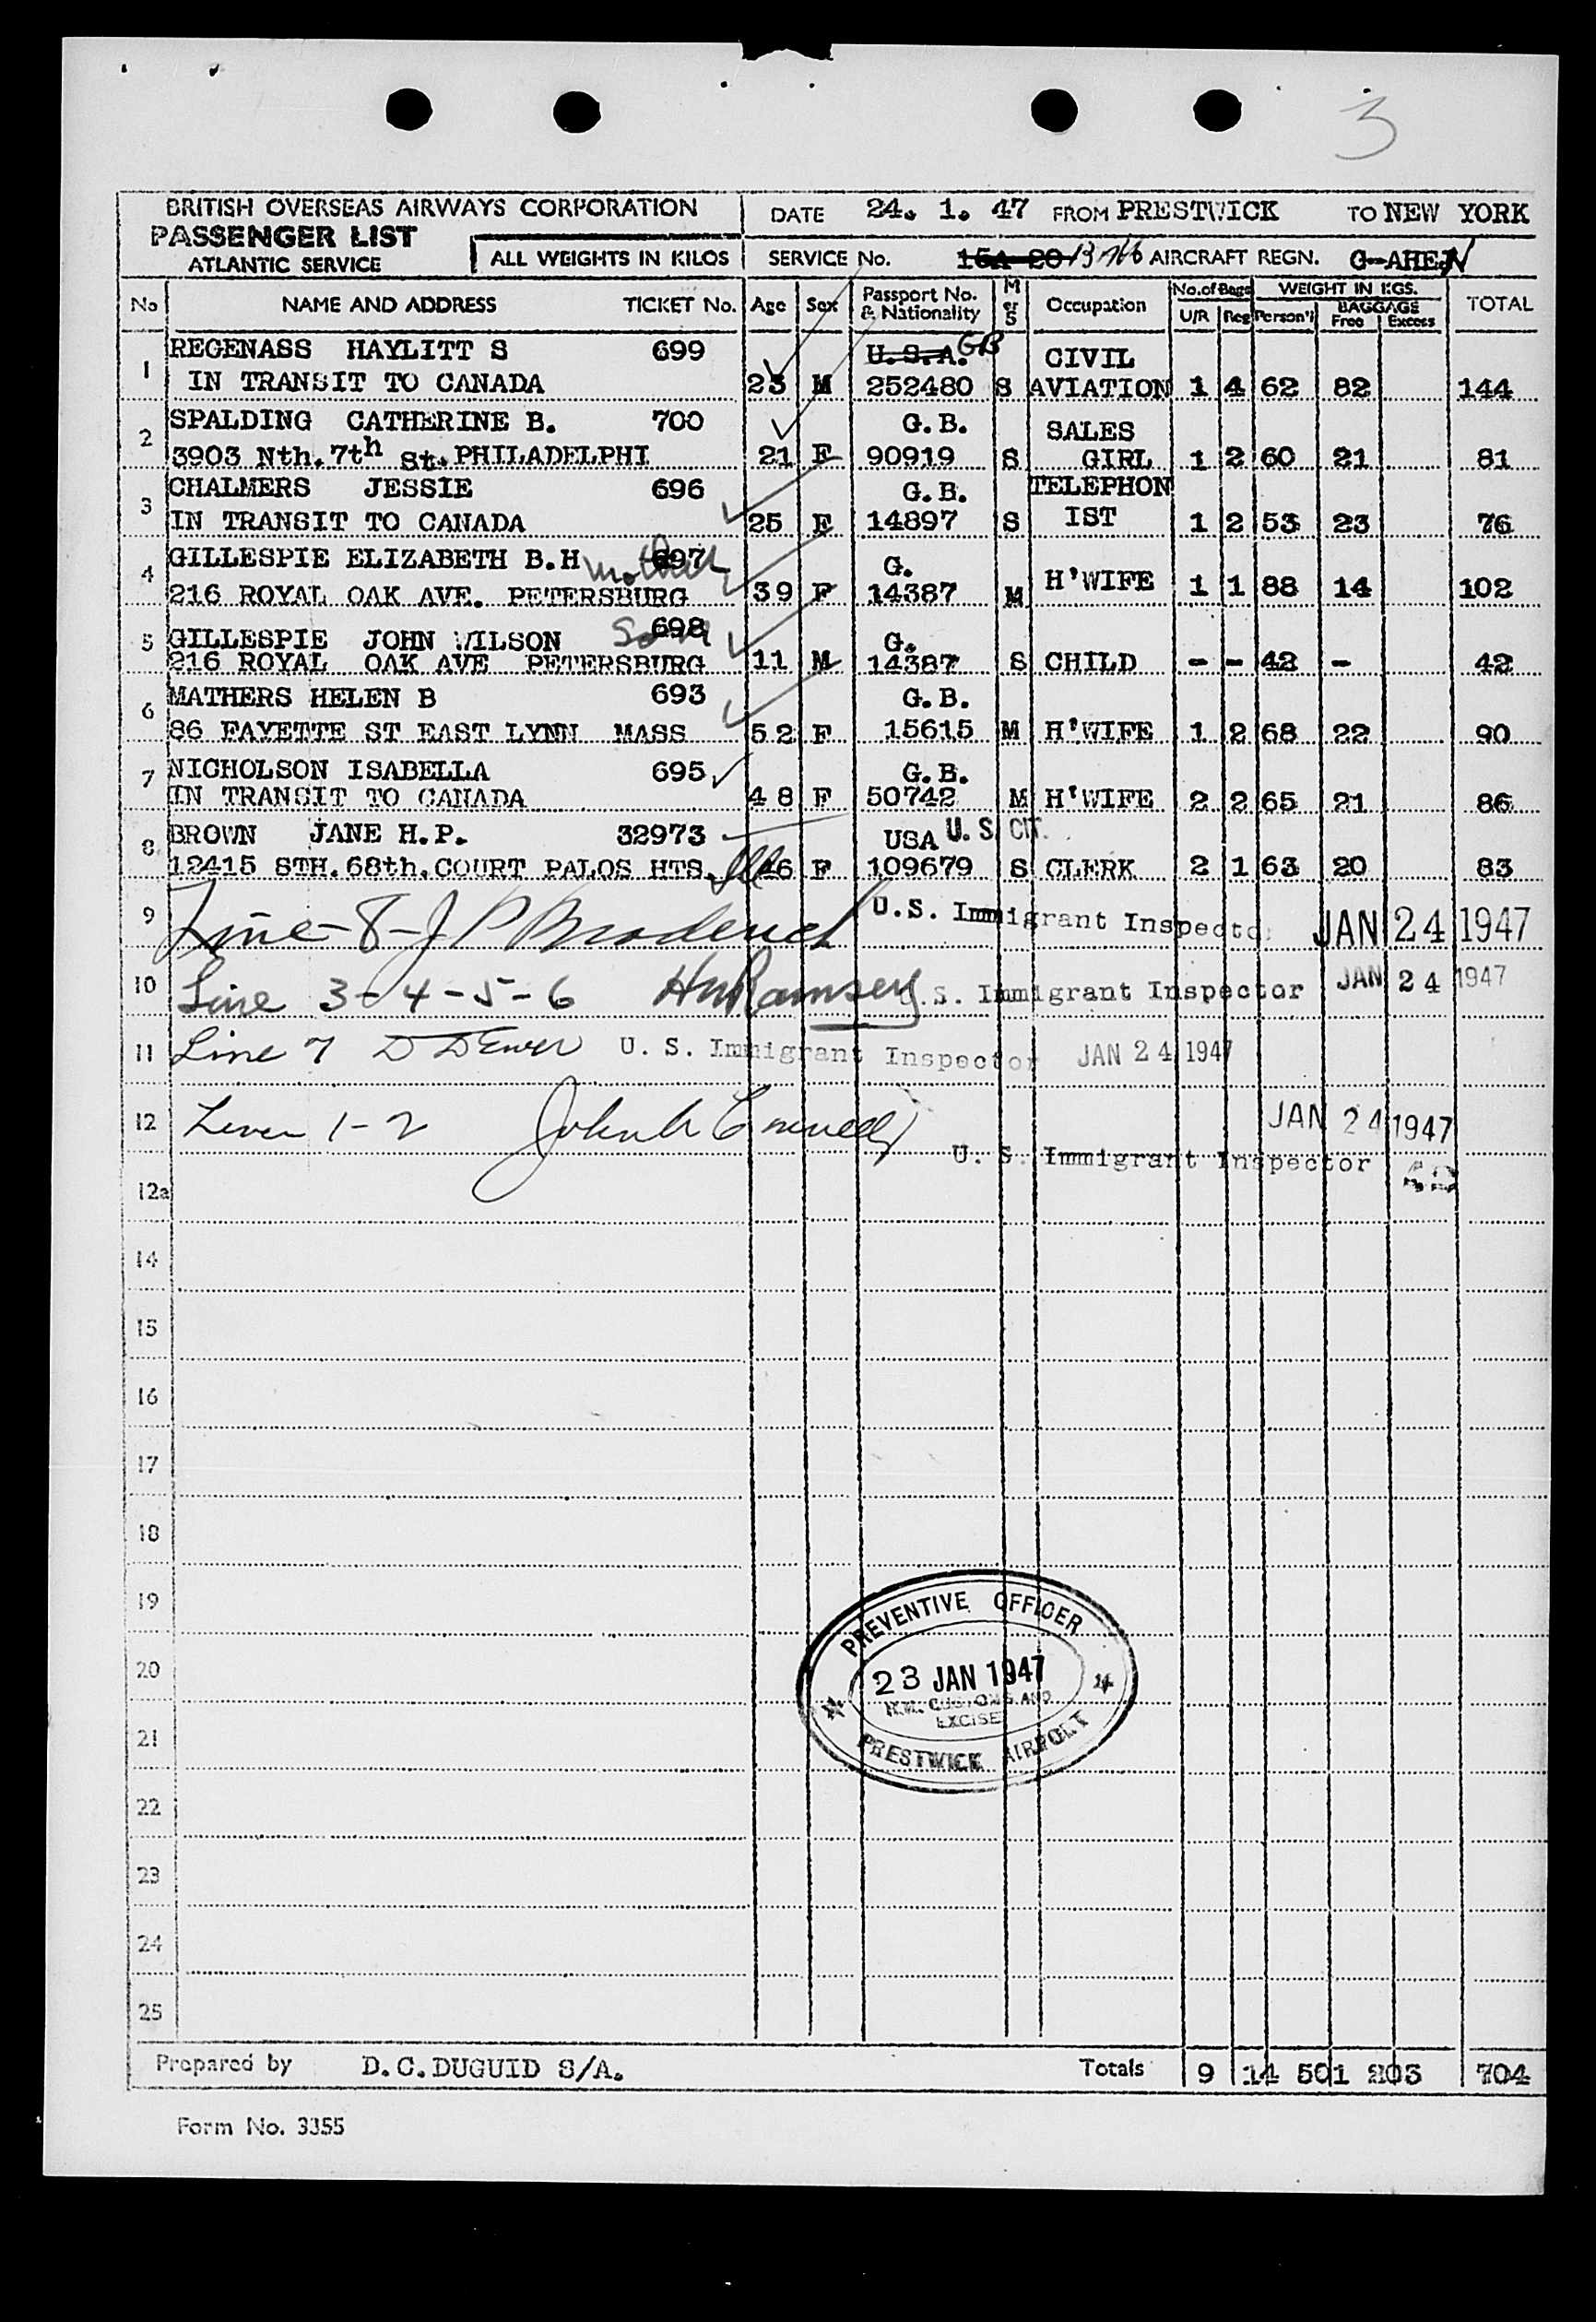 3
BRITISH OVERSEAS AIRWAYS CORPORATION DATE 24. 1. 47 FROM PRESTWICK TO NEW YORK
PASSENGER LIST
ATLANTIC SERVICE ALL WEIGHTS IN KILOS SERVICE No. 15A 20 AIRCRAFT REGN. G-AHEN
No NAME AND ADDRESS TICKET No. Age Sex Passport No. & Nationality M or S Occupation No. of Bags U/R Reg WEIGHT IN KGS. Person'l BAGGAGE Free Excess TOTAL
1 REGENASS HAYLITT S 699 U.S.A. GB CIVIL
IN TRANSIT TO CANADA 23 M 252480 S AVIATION 1 4 62 82 144
2 SPALDING CATHERINE B. 700 G.B. SALES
3903 Nth. 7th St. PHILADELPHI 21 F 90919 S GIRL 1 2 60 21 81
3 CHALMERS JESSIE 696 G.B. TELEPHON
IN TRANSIT TO CANADA 25 F 14897 S IST 1 2 53 23 76
4 GILLESPIE ELIZABETH B.H mother 697 G.
216 ROYAL OAK AVE. PETERSBURG 39 F 14387 M H'WIFE 1 1 88 14 102
5 GILLESPIE JOHN WILSON Son 698 G.
216 ROYAL OAK AVE PETERSBURG 11 M 14387 S CHILD - - 42 - 42
6 MATHERS HELEN B 693 G.B.
86 FAYETTE ST EAST LYNN MASS 52 F 15615 M H'WIFE 1 2 68 22 90
7 NICHOLSON ISABELLA 695 G.B.
IN TRANSIT TO CANADA 48 F 50742 M H'WIFE 2 2 65 21 86
8 BROWN JANE H.P. 32973 USA U.S. CIT.
12415 STH. 68th. COURT PALOS HTS. Ill 46 F 109679 S CLERK 2 1 63 20 83
9 Line-8-J P Broderick U.S. Immigrant Inspector JAN 24 1947
10 Line 3-4-5-6 HW Ramsey U.S. Immigrant Inspector JAN 24 1947
11 Line 7 U. S. Immigrant Inspector JAN 24 1947
12 Lines 1-2 JAN 24 1947
U. S. Immigrant Inspector
12a
14
15
16
17
18
19
PREVENTIVE OFFICER
20
23 JAN 1947
H.M. CUSTOMS AND
EXCISE
21
PRESTWICK AIRPORT
22
23
24
25
Prepared by D.C.DUGUID S/A. Totals 9 14 501 203 704
Form No. 3355